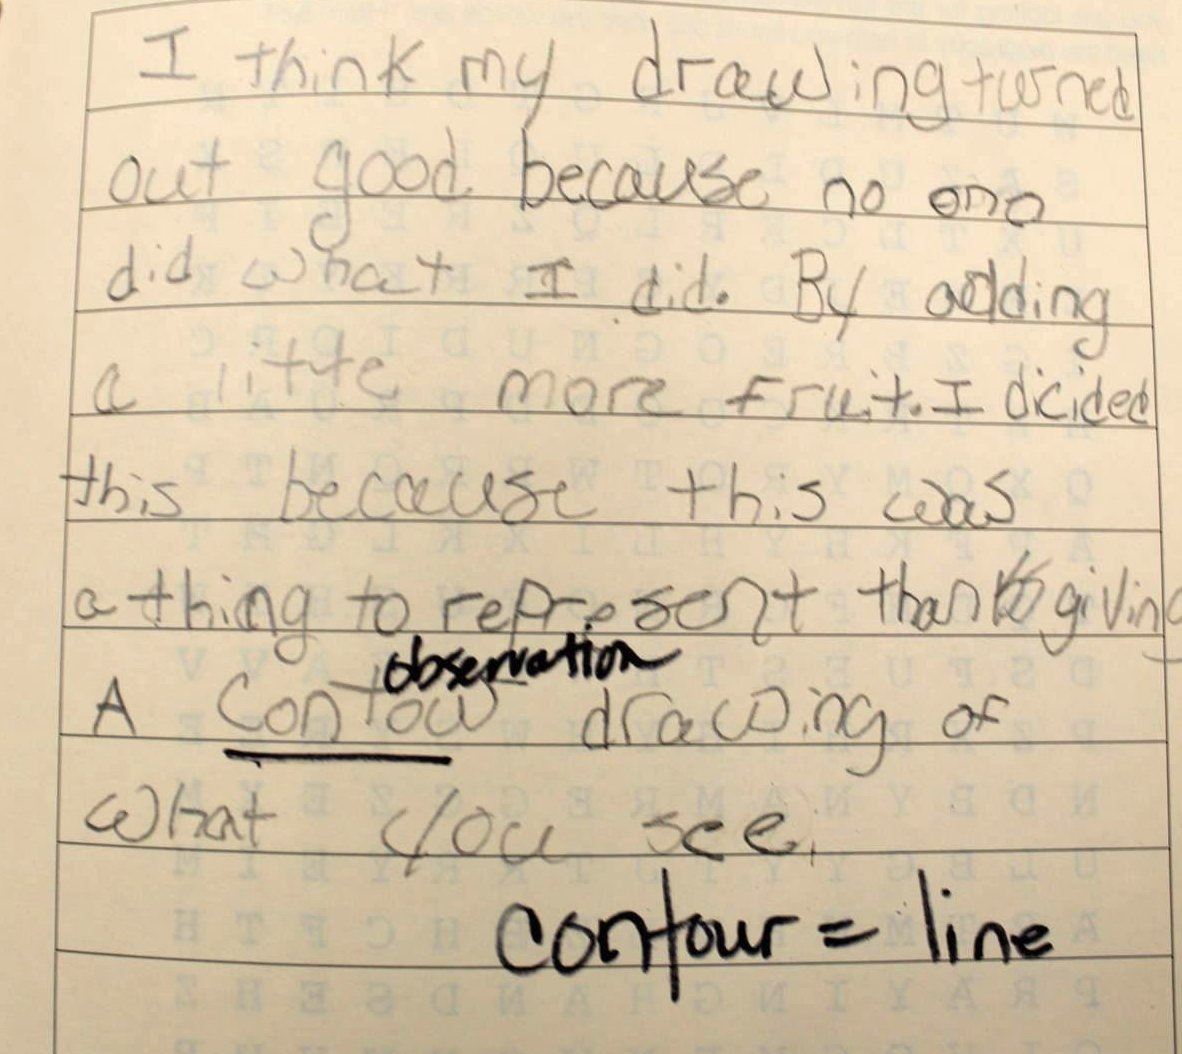 I think my drawing turned
out good because no one
did what I did. By adding
a litte more fruit. I dicided
this because this was
a thing to represent thanksgiving
observation
A Contour drawing of
what you see.
contour = line